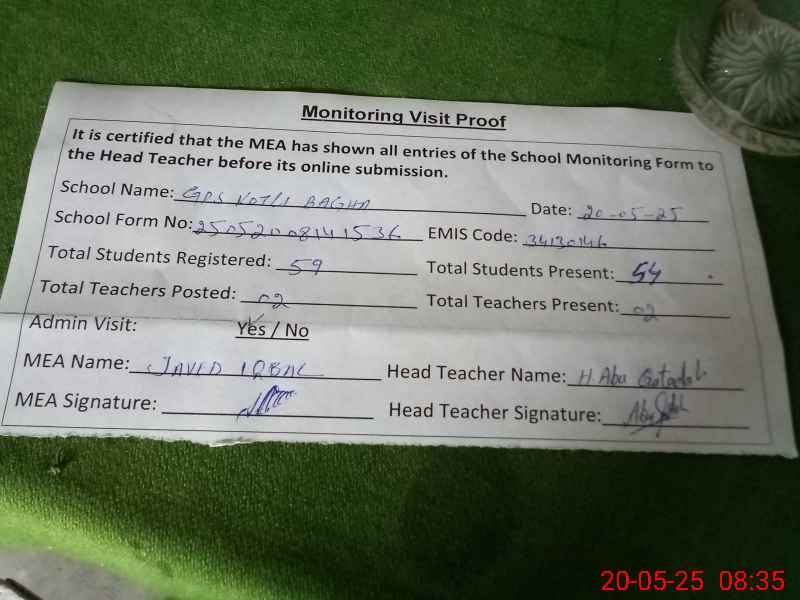 Monitoring Visit Proof
It is certified that the MEA has shown all entries of the School Monitoring Form to
the Head Teacher before its online submission.
School Name: GPS KOTLI BAGHA Date: 20-05-25
School Form No: 250520008141536 EMIS Code: 34130146
Total Students Registered: 59 Total Students Present: 54
Total Teachers Posted: 02 Total Teachers Present: 02
Admin Visit: Yes / No
MEA Name: JAVED IQBAL Head Teacher Name: H. Abu
MEA Signature: Head Teacher Signature:
20-05-25 08:35